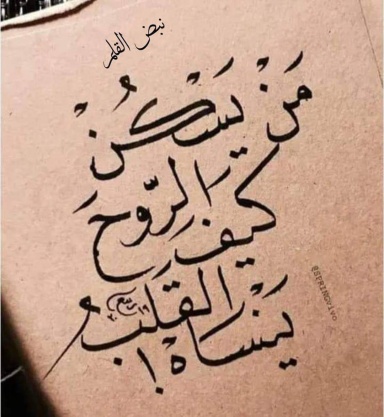 نبض القلم
مَنْ يَسْكُنْ
الرّوحَ
كيفَ
القلبُ
ينساهُ!
@SPRINGVIVO